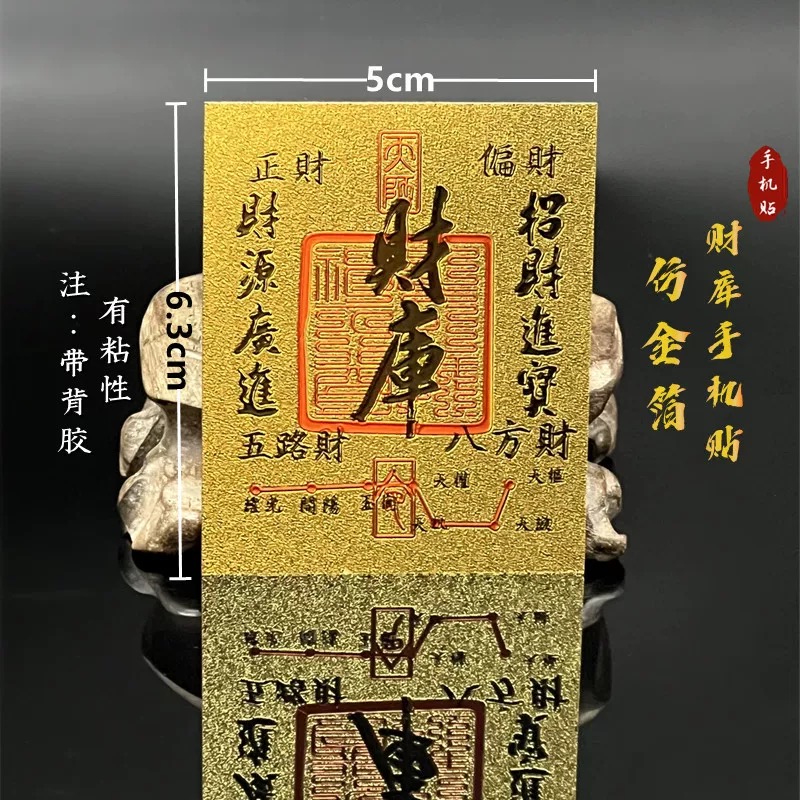 5cm
6.3cm
天師
正財
偏財
財源廣進
財庫
招財進寶
五路財
八方財
天權
天樞
開陽
手机贴
财库手机贴
仿金箔
注：带背胶
有粘性